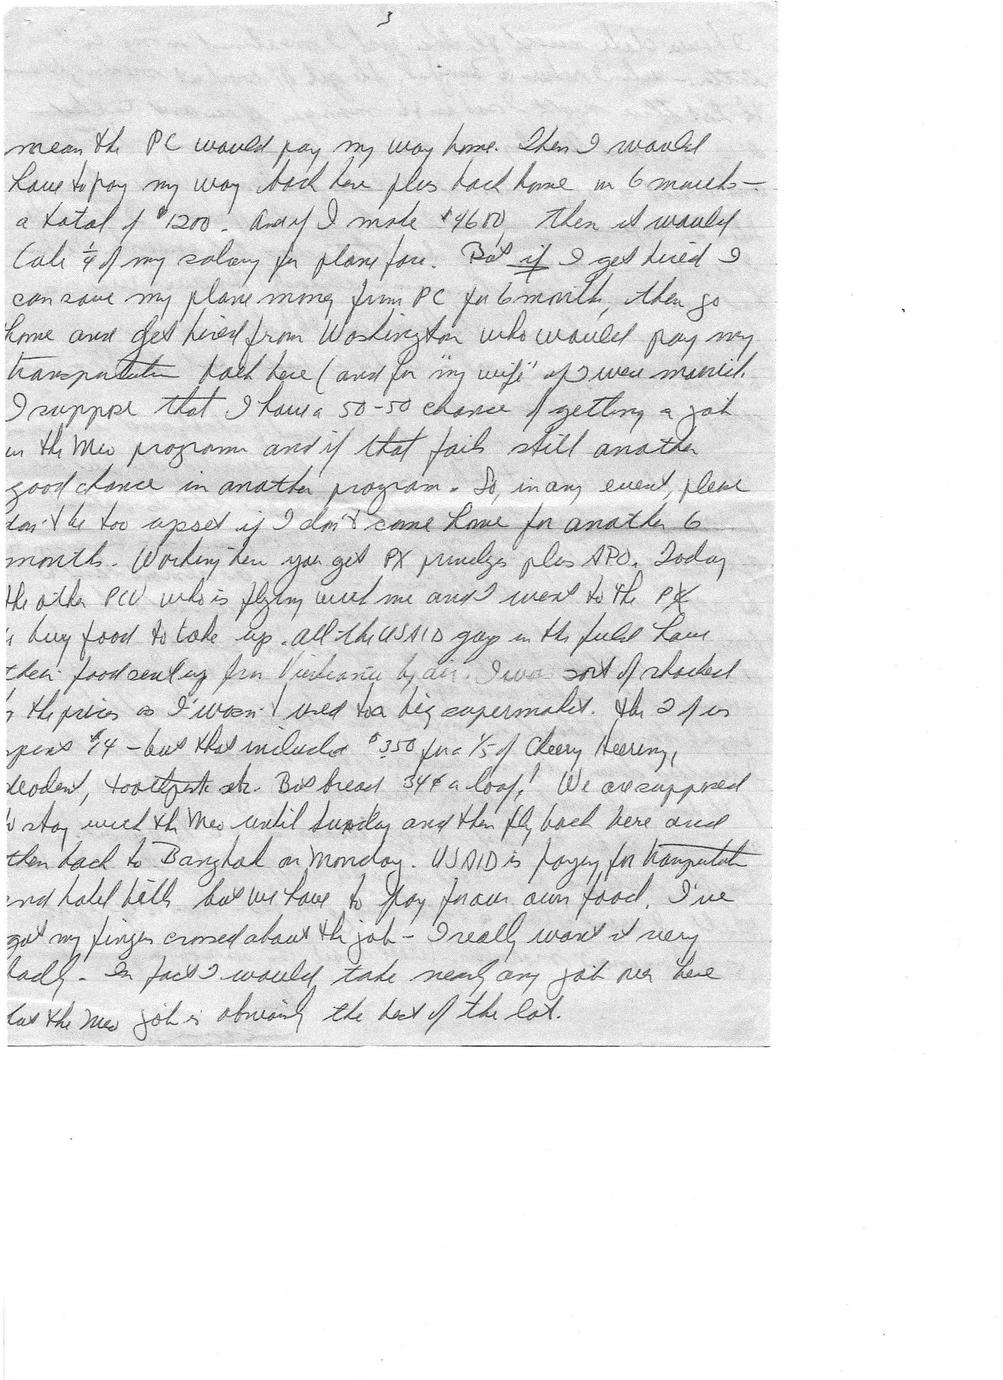 3
mean the PC would pay my way home. Then I would
have to pay my way back here plus back home in 6 months —
a total of $1200. And if I made $4600, then it would
take 1/4 of my salary for plane fare. But if I get hired I
can save my plane money from PC for 6 month, then go
home and get hired from Washington who would pay my
transportation back here (and for "my wife" if I were married.
I suppose that I have a 50-50 chance of getting a job
in the Meo program and if that fails still another
good chance in another program. So, in any event, please
don't be too upset if I don't come home for another 6
months. Working here you get PX privileges plus APO. Today
the other PCV who is flying with me and I went to the PX
to buy food to take up. All the USAID guys in the field have
their food sent up from Vientiane by air. I was sort of shocked
the prices as I wasn't used to a big supermarket. The 2 of us
spent $14 – but that included $3.50 for a 1/5 of Cheery Heering,
deodent, toothpaste etc. But bread 34¢ a loaf! We are supposed
to stay with the Meo until Sunday and then fly back here and
then back to Bangkok on Monday. USAID is paying for transportation
and hotel bills but we have to pay for our own food. I've
got my fingers crossed about the job – I really want it very
badly. In fact I would take nearly any job over here
but the Meo job is obviously the best of the lot.